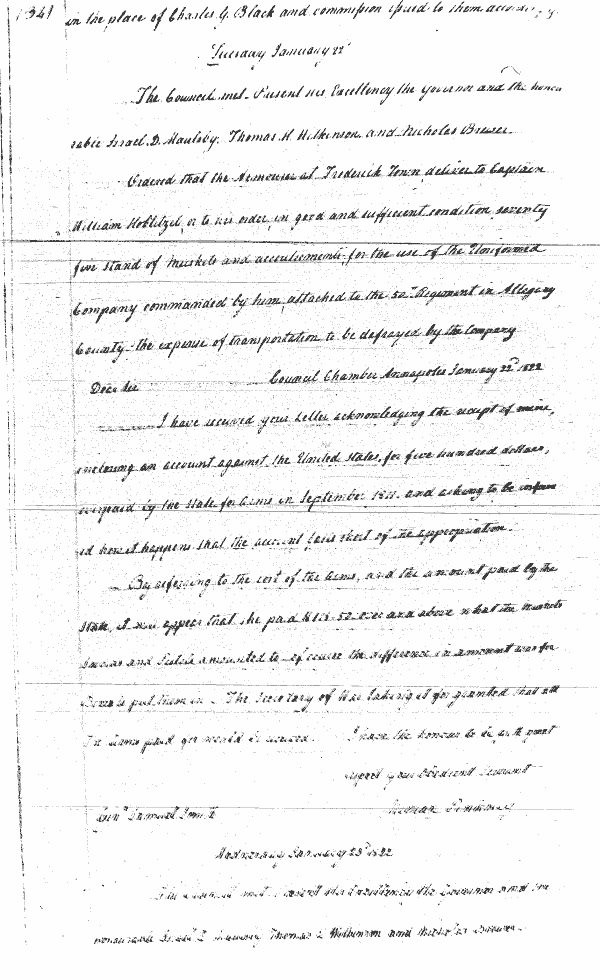 in the place of Charles G. Black and commission issued to them
Tuesday January 22d
The Council met. Present his Excellency the Governor and the honou
rable Israel D. Maulsby, Thomas H. Wilkinson and Nicholas Brewer.
Ordered that the Armourer at Frederick Town deliver to Captain
William Hoblitzel, or to his order, in good and sufficient condition seventy
five stand of Muskets and accoutrements, for the use of the Uniformed
Company commanded by him, attached to the 50th Regiment in Allegany
County. the expense of transportation to be defrayed by the Company
Council Chamber Annapolis January 22d 1822
Dear Sir
I have received your Letter acknowledging the receipt of mine,
enclosing an account against the United States, for five hundred dollars,
overpaid by the State for Arms in September 1811. and asking to be inform
ed how it happens that the account falls short of the appropriation.
By referring to the cost of the Arms, and the amount paid by the
State, it will appear that she paid over and above what the Muskets
and Pistols amounted to of course the difference in amount was for
put them in. The Secretary of War taking it for granted that all
the Arms paid for would be received. I have the honour to be with great
respect your Obedient Servant
Genl Samuel Smith
Pinkney
Wednesday January 23d 1822
The Council met. Present his Excellency the Governor and the
honourable Israel D. Maulsby Thomas H. Wilkinson and Nicholas Brewer.